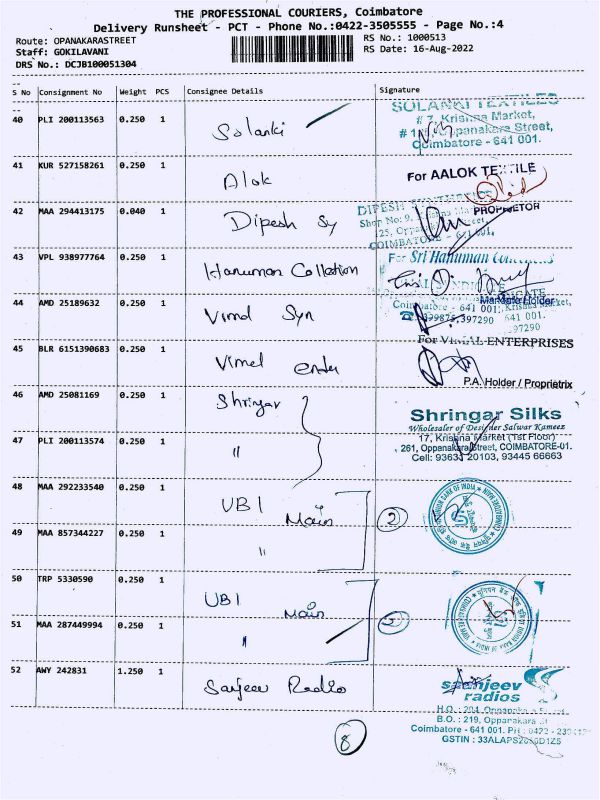 THE PROFESSIONAL COURIERS, Coimbatore
Delivery Runsheet - PCT - Phone No.:0422-3505555 - Page No.:4
Route: OPANAKARASTREET
Staff: GOKILAVANI
DRS No.: DCJB100051304
RS No.: 1000513
RS Date: 16-Aug-2022
S No Consignment No Weight PCS Consignee Details Signature
40 PLI 200113563 0.250 1 Solanki
SOLANKI TEXTILES
# 7, Krishna Market,
Oppanakara Street,
Coimbatore - 641 001.
41 KUR 527158261 0.250 1 Alok
For AALOK TEXTILE
PROPRIETOR
42 MAA 294413175 0.040 1 Dipesh Sy
DIPESH
Shop No: 9,
COIMBATORE
43 VPL 938977764 0.250 1 Hanuman Collection
For Sri Hanuman
44 AMD 25189632 0.250 1 Vimal Syn
Coimbatore - 641 001.
397290
Mandate Holder
Krishna Market,
641 001.
397290
45 BLR 6151390683 0.250 1 Vimel Enter
For VIMAL ENTERPRISES
P.A. Holder / Proprietrix
46 AMD 25081169 0.250 1 Shringar
Shringar Silks
Wholesaler of Designer Salwar Kameez
17, Krishna Market (1st Floor)
261, Oppanakara Street, COIMBATORE-01.
Cell: 93631 20103, 93445 66663
47 PLI 200113574 0.250 1 "
48 MAA 292233540 0.250 1 UBI Main 2
49 MAA 857344227 0.250 1 "
50 TRP 5330590 0.250 1 UBI Main
51 MAA 287449994 0.250 1 "
52 AWY 242831 1.250 1 Sanjeev Radio
sanjeev
radios
H.O. : 204, Oppanakara
B.O. : 219, Oppanakara St
Coimbatore - 641 001. PH : 0422 -
GSTIN : 33ALAPS
8